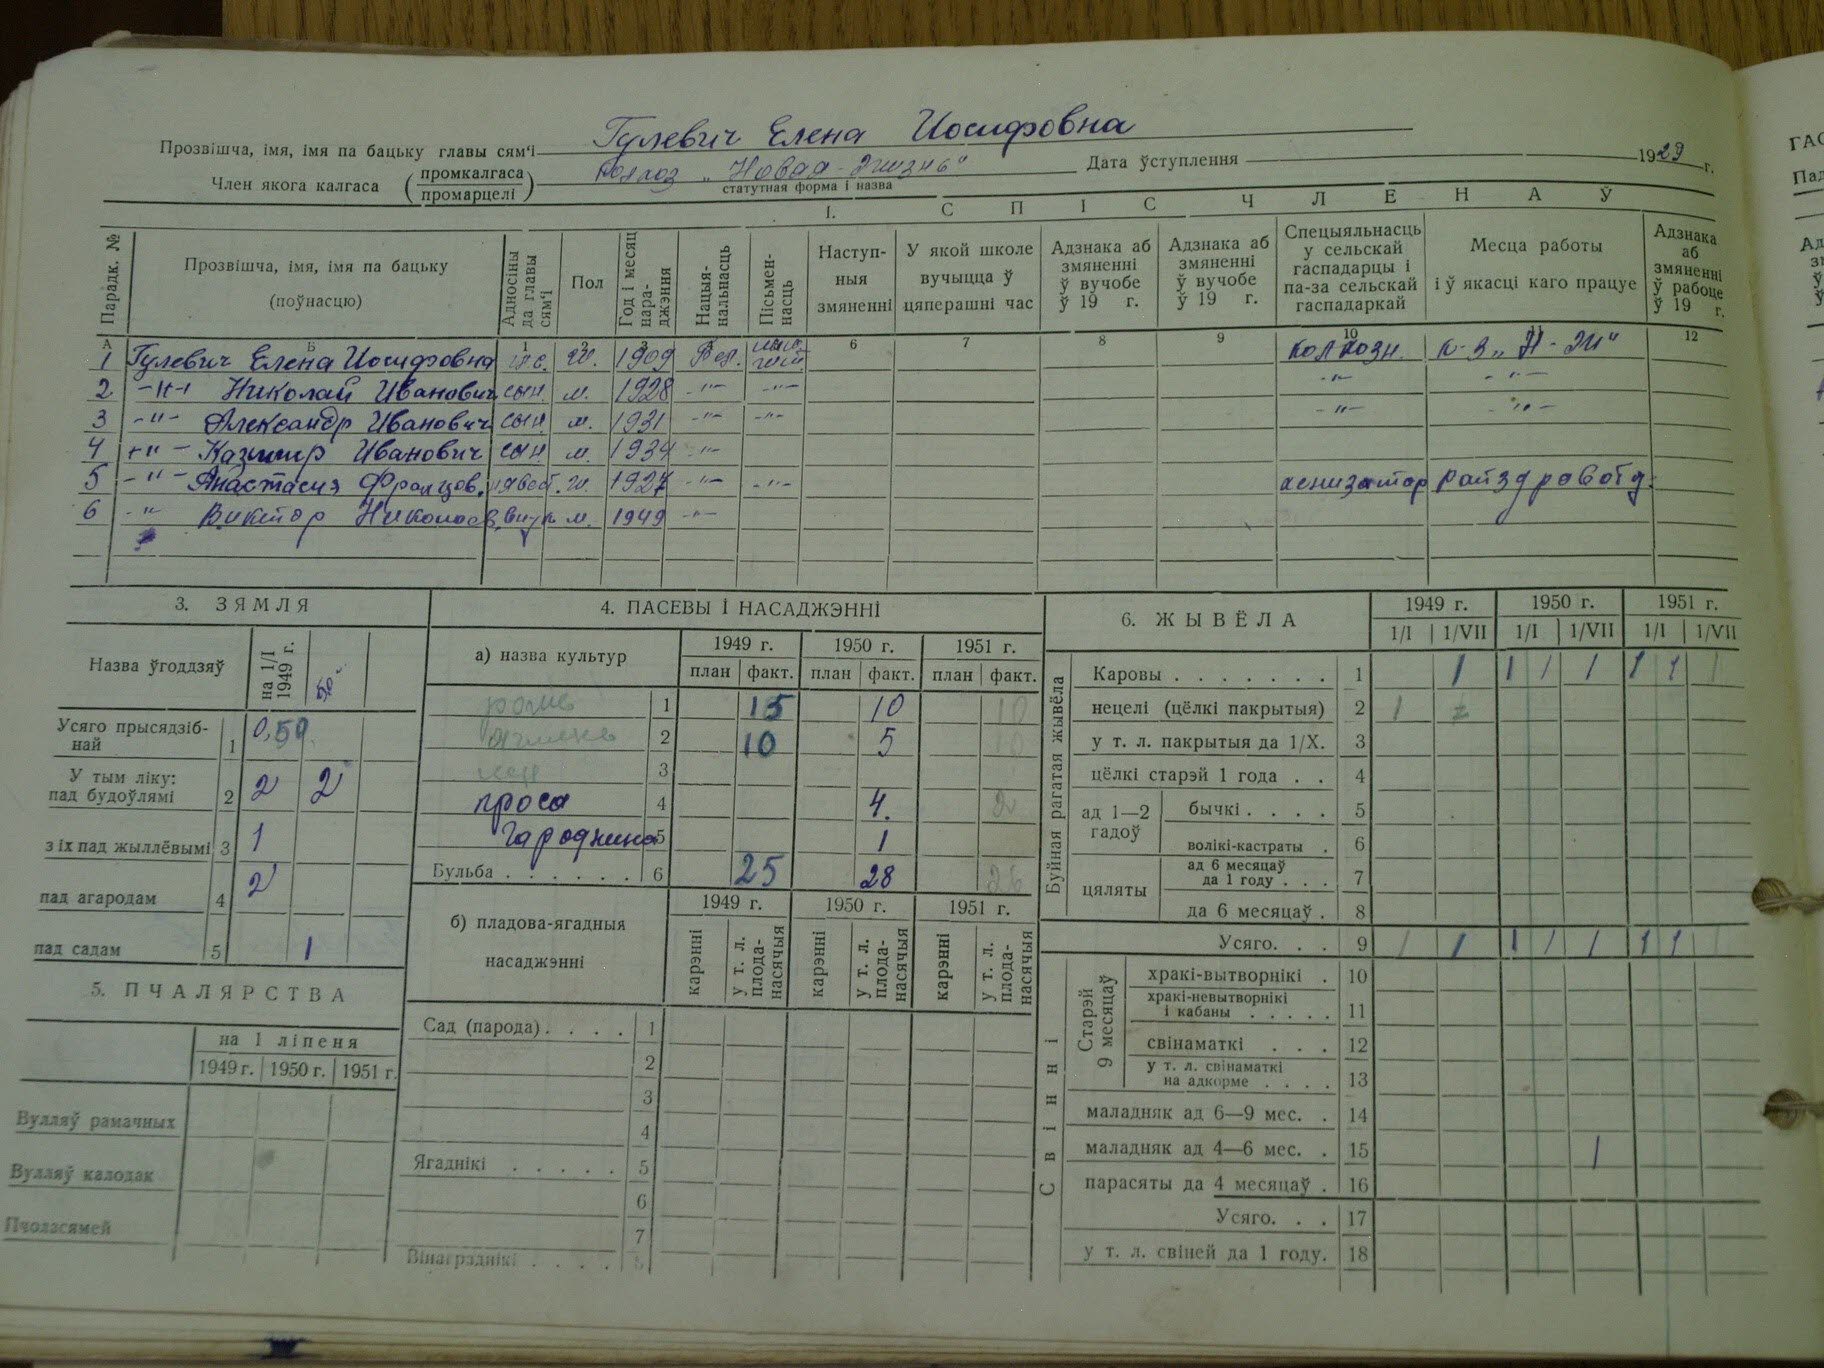 Прозвішча, імя, імя па бацьку главы сям'і Гулевич Елена Иосифовна
Член якога калгаса (промкалгаса промарцелі) колхоз „Новая-Жизнь"
статутная форма і назва
Дата ўступлення 1929 г.
I. СПІС ЧЛЕНАЎ
Парадк. № | Прозвішча, імя, імя па бацьку (поўнасцю) | Адносіны да главы сям'і | Пол | Год і месяц нараджэння | Нацыянальнасць | Пісьменнасць | Наступныя змяненні | У якой школе вучыцца ў цяперашні час | Адзнака аб змяненні ў вучобе ў 19 г. | Адзнака аб змяненні ў вучобе ў 19 г. | Спецыяльнасць у сельскай гаспадарцы і па-за сельскай гаспадаркай | Месца работы і ў якасці каго працуе | Адзнака аб змяненні ў рабоце ў 19 г.
А Б 1 2 3 4 5 6 7 8 9 10 11 12
1 Гулевич Елена Иосифовна ж. 1909 Бел. колхозн. к-з „Н-Ж"
2 -"- Николай Иванович сын м. 1928 -"- -"- -"- -"-
3 -"- Александр Иванович сын м. 1931 -"- -"- -"- -"-
4 -"- Казимир Иванович сын м. 1934 -"-
5 -"- Анастасия Францов. невест. ж. 1927 -"- -"- райздравотд.
6 -"- Виктор Николаев. внук м. 1949 -"-
3. ЗЯМЛЯ
Назва ўгоддзяў | на 1/I 1949 г. | 50
Усяго прысядзібнай 1 0,50
У тым ліку: пад будоўлямі 2 2 2
з іх пад жыллёвымі 3 1
пад агародам 4 2
пад садам 5 1
5. ПЧАЛЯРСТВА
на 1 ліпеня
1949 г. 1950 г. 1951 г.
Вулляў рамачных
Вулляў калодак
Пчоласямей
4. ПАСЕВЫ І НАСАДЖЭННІ
а) назва культур | 1949 г. | 1950 г. | 1951 г.
план факт. план факт. план факт.
1 15 10 10
ячмень 2 10 5 10
3
проса 4 4. 2
гародніна 5 1
Бульба . . . . . . 6 25 28 26
б) пладова-ягадныя насаджэнні | 1949 г. | 1950 г. | 1951 г.
карэнні | у т. л. плоданасячыя | карэнні | у т. л. плоданасячыя | карэнні | у т. л. плоданасячыя
Сад (парода) . . . . 1
2
3
4
Ягаднікі . . . . . 5
6
7
Вінаграднікі . . . . 8
6. ЖЫВЁЛА | 1949 г. | 1950 г. | 1951 г.
1/I 1/VII 1/I 1/VII 1/I 1/VII
Буйная рагатая жывёла
Каровы . . . . . . . 1 1 1 1 1 1 1 1
нецелі (цёлкі пакрытыя) 2 1
у т. л. пакрытыя да 1/X. 3
цёлкі старэй 1 года . . 4
ад 1—2 гадоў
бычкі . . . . 5
волікі-кастраты . 6
цяляты
ад 6 месяцаў да 1 году . . . 7
да 6 месяцаў . 8
Усяго. . . 9 1 1 1 1 1 1 1 1
Свінні
Старэй 9 месяцаў
хракі-вытворнікі . 10
хракі-невытворнікі і кабаны . . . . . 11
свінаматкі . . . 12
у т. л. свінаматкі на адкорме . . . . 13
маладняк ад 6—9 мес. . 14
маладняк ад 4—6 мес. . 15 1
парасяты да 4 месяцаў . 16
Усяго. . . 17
у т. л. свіней да 1 году. 18